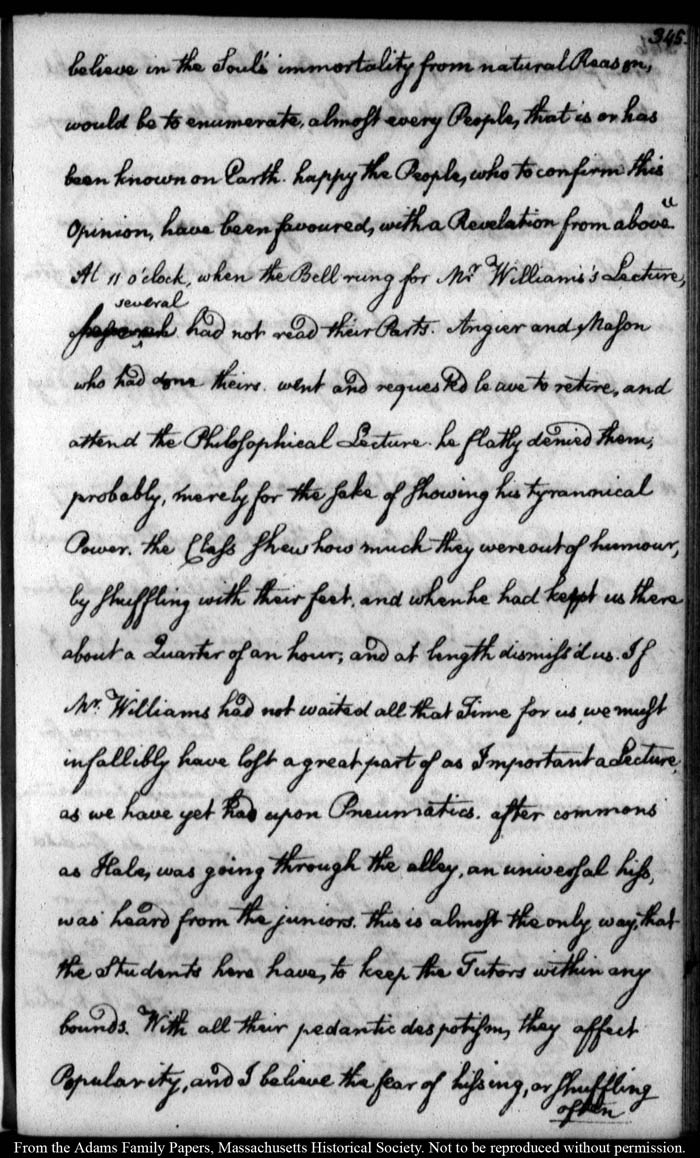 345.
believe in the Soul's immortality from natural Reason,
would be to enumerate, almost every People, that is or has
been known on Earth. happy the People, who to confirm this
Opinion, have been favoured, with a Revelation from above."
At 11 o'clock, when the Bell rung for Mr. Williams's Lecture,
several
had not read their Parts. Angier and Mason
who had done theirs. went and requested leave to retire, and
attend the Philosophical Lecture. he flatly denied them,
probably, merely for the sake of showing his tyrannical
Power. the Class shew how much they were out of humour,
by shuffling with their feet. and when he had kept us there
about a Quarter of an hour; and at length dismiss'd us. If
Mr. Williams had not waited all that Time for us, we must
infallibly have lost a great part of as Important a Lecture,
as we have yet had upon Pneumatics. after commons
as Hale, was going through the alley, an universal hiss,
was heard from the juniors. this is almost the only way, that
the Students here have, to keep the Tutors within any
bounds. With all their pedantic despotism, they affect
Popularity, and I believe the fear of hissing, or shuffling
often
From the Adams Family Papers, Massachusetts Historical Society. Not to be reproduced without permission.